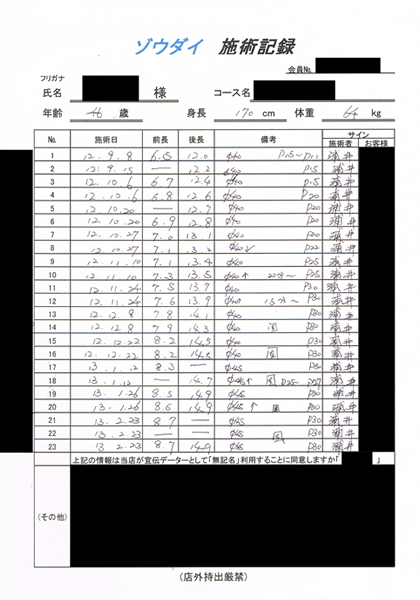 ゾウダイ 施術記録
会員No.
フリガナ
氏名 様 コース名
年齢 46 歳 身長 170 cm 体重 64 kg
No. 施術日 前長 後長 備考 サイン
施術者 お客様
1 12.9.8 6.5 12.0 φ40 浦井
2 12.9.15 — 12.2 φ40 P15 浦井
3 12.10.6 6.7 12.4 φ40 P15 浦井
4 12.10.6 6.8 12.6 φ40 P20 浦井
5 12.10.20 — 12.7 φ40 P20 浦井
6 12.10.20 6.9 12.8 φ40 P20 浦井
7 12.10.27 7.0 13.1 φ40 P20 浦井
8 12.10.27 7.1 13.2 φ40 P22 浦井
9 12.11.10 7.1 13.4 φ40 P25 浦井
10 12.11.10 7.3 13.5 φ40↑ P25 浦井
11 12.11.24 7.5 13.7 φ40 P30 浦井
12 12.11.24 7.6 13.9 φ40 P30 浦井
13 12.12.8 7.8 14.1 φ40 P30 浦井
14 12.12.8 7.9 14.3 φ40 P30 浦井
15 12.12.22 8.2 14.5 φ40 P30 浦井
16 12.12.22 8.2 14.5 φ40 P30 浦井
17 13.1.12 8.3 — φ45 P30 浦井
18 13.1.12 — 14.7 浦井
19 13.1.26 8.5 14.9 φ45 P30 浦井
20 13.1.26 8.6 14.9 φ45↑ P30 浦井
21 13.2.23 8.7 — φ45 P30 浦井
22 13.2.23 — — φ45 P30 浦井
23 13.2.23 8.7 14.9 φ45 P30 浦井
上記の情報は当店が宣伝データーとして「無記名」利用することに同意しますか「 」
(その他)
(店外持出厳禁)